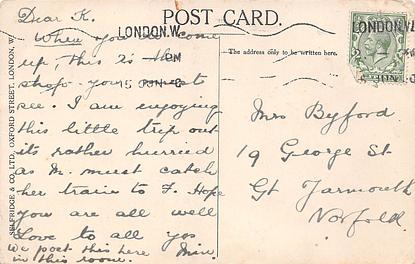 POST CARD.
LONDON.W.
LONDON.W.
15 JUN
The address only to be written here.
SELFRIDGE & CO., LTD., OXFORD STREET, LONDON, W.
Dear K.
When you come
up, this is the
shop you must
see. I am enjoying
this little trip out
its rather hurried
as M. must catch
her train to F. Hope
you are all well
Love to all yos
Min.
We post this here
in this room.
Mrs Byford.
19 George St.
Gt Yarmouth
Norfolk